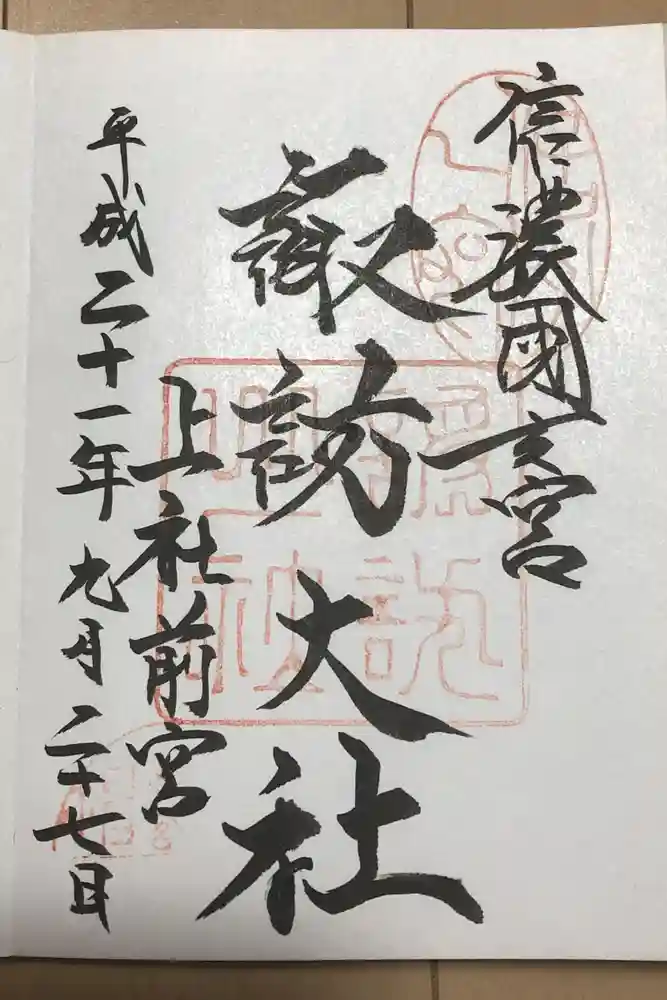 信濃國一宮
諏訪大社
上社前宮
平成二十一年九月二十七日